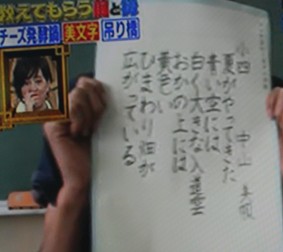 教えてもらう前と後
チーズ発酵鍋 美文字 吊り橋
小四 中山
夏がやってきた
青い空には
白く大きな入道雲
おかの上には
黄色い
ひまわり畑が
広がっている